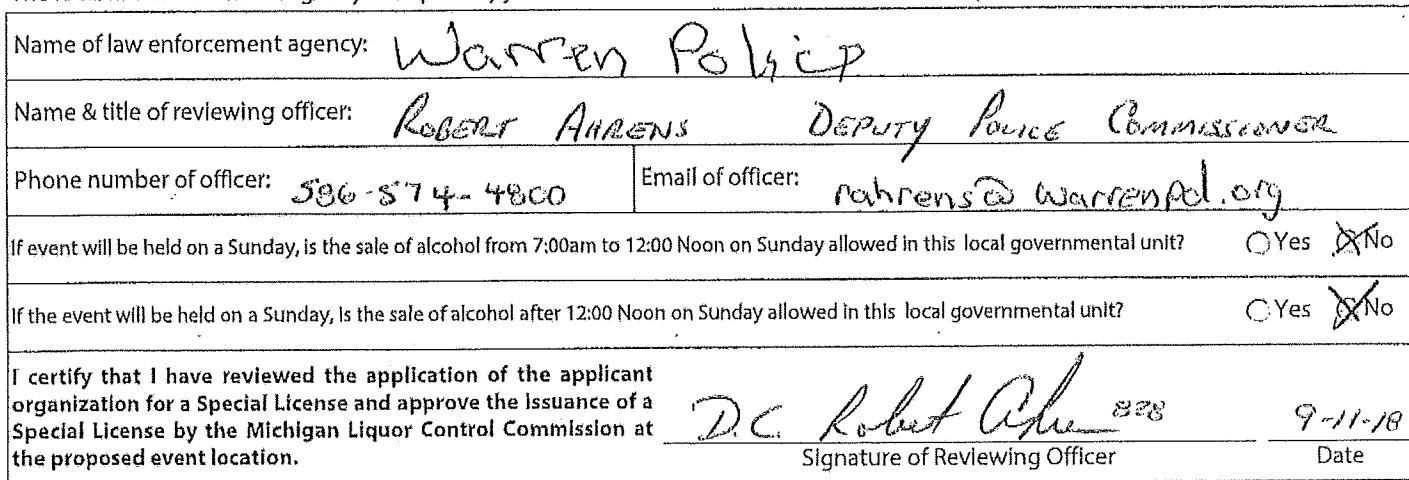 Name of law enforcement agency: Warren Police
Name & title of reviewing officer: ROBERT AHRENS DEPUTY POLICE COMMISSIONER
Phone number of officer: 586-574-4800 Email of officer: rahrens@warrenpd.org
If event will be held on a Sunday, is the sale of alcohol from 7:00am to 12:00 Noon on Sunday allowed in this local governmental unit? Yes No
If the event will be held on a Sunday, is the sale of alcohol after 12:00 Noon on Sunday allowed in this local governmental unit? Yes No
I certify that I have reviewed the application of the applicant
organization for a Special License and approve the issuance of a
Special License by the Michigan Liquor Control Commission at
the proposed event location.
D.C. Robert 828 9-11-18
Signature of Reviewing Officer Date